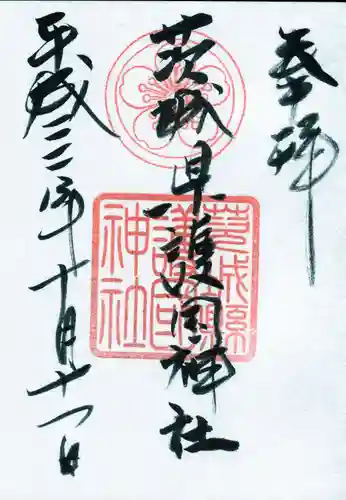 奉拝
茨城県護国神社
平成二二年十月十一日
茨城県
護国
神社